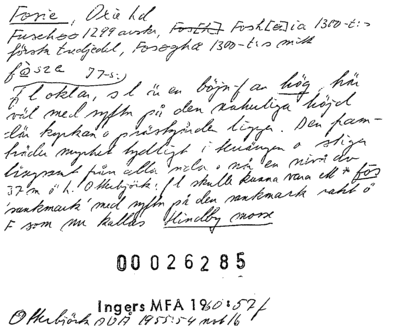 Fosie, Oxie hd
Fuschøø 1299 avskr, Fos[k] Fosh[ø]ia 1300-t:s
första tredjedel, Fosøghæ 1300-t:s mitt
føsze 77-s.;
F l oklar, s l är en böjn-f av hög, här
väl med syftn på den naturliga höjd
där kyrkan o prästgården ligger. Den fram-
träder mycket tydligt i terrängen o stiger
långsamt från alla sidor o når en nivå av
37 m ö h. Otterbjörk: f l skulle kunna vara ett * fos
'sankmark' med syftn på den sankmark rakt ö
F som nu kallas Hindby mosse
00026285
Ingers MFA 1960:52f
Otterbjörk DUÅ 1955:54 not 16